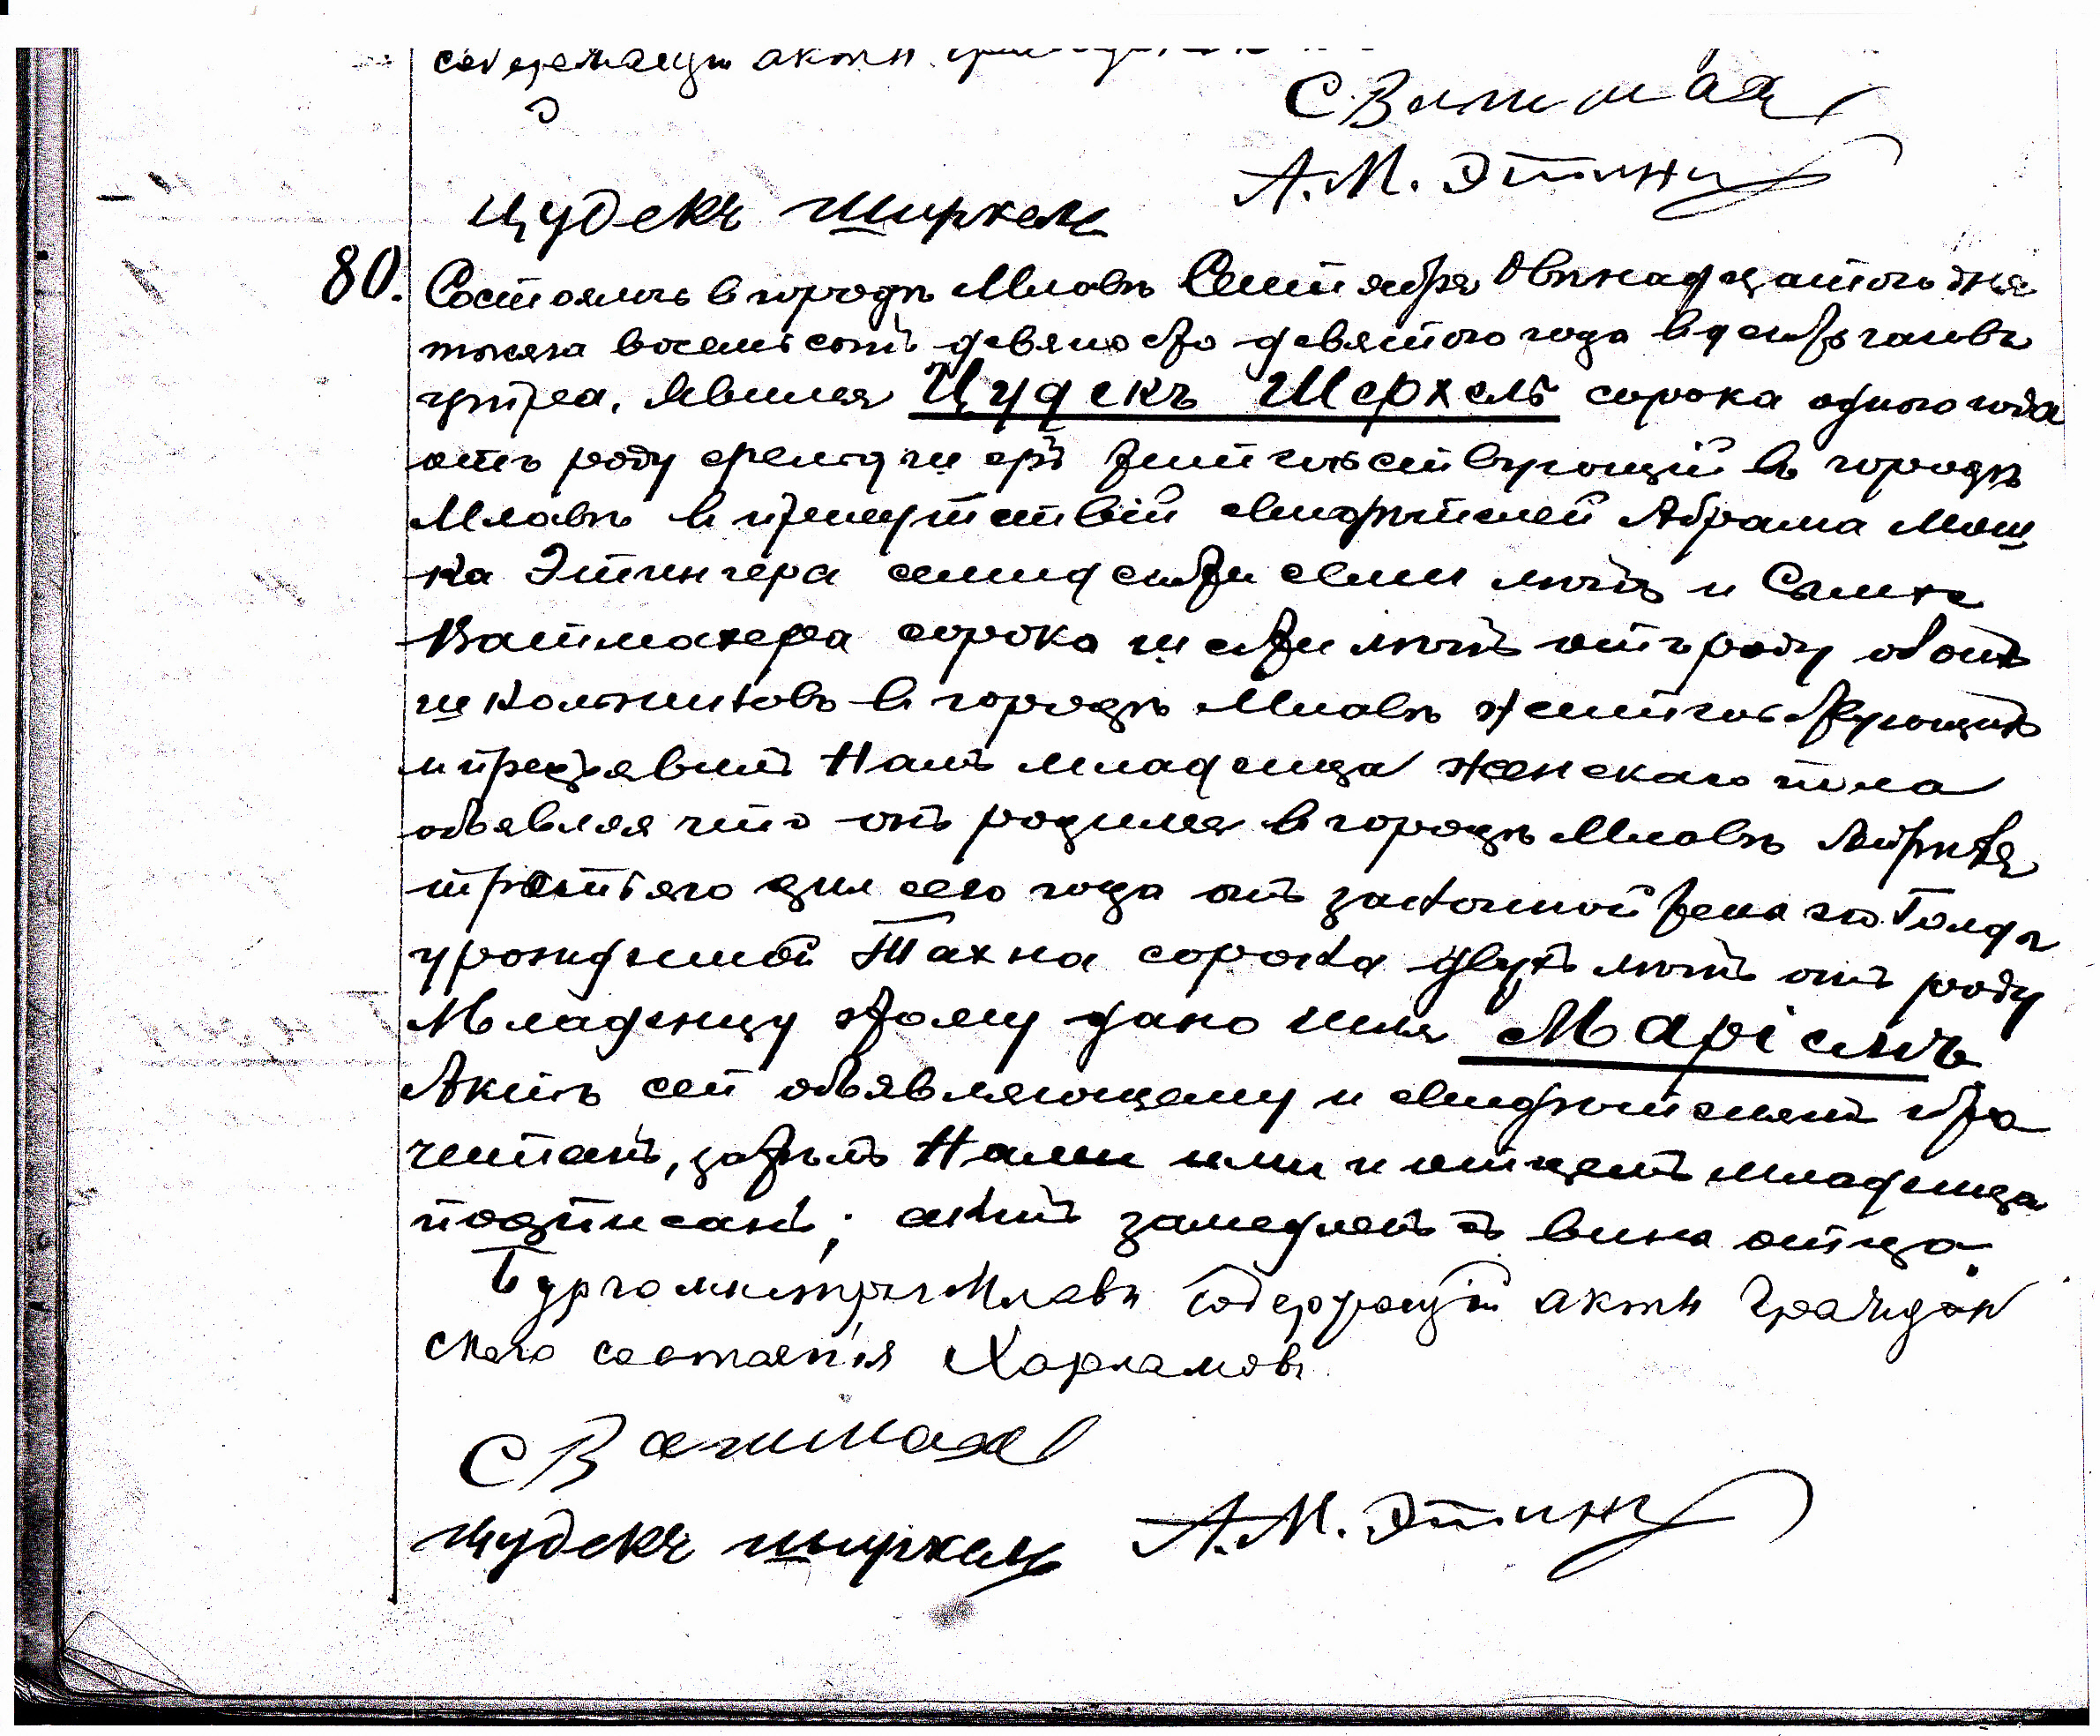 содержащій акты
С Ватмах
А. М. Этинг
Цудекъ Ширхель
80. Состоялось в городѣ Млавѣ Сентября двѣнадцатого дня
тысяча восемьсотъ девяносто девятого года в десять часовъ
утра. Явился Цудекъ Шерхель сорока одного года
отъ роду жительствующій въ городѣ
Млавѣ в присутствіи свидѣтелей Абрама Мош
ка Этингера семидесяти семи лѣтъ и Симхе
Ватмахера сорока шести лѣтъ отъ роду обоихъ
школьниковъ в городѣ Млавѣ жительствующихъ
и предъявилъ Намъ младенца женскаго пола
объявляя что онъ родился в городѣ Млавѣ Апрѣля
третьяго дня сего года отъ законной жены его Голды
урожденной Тахна сорока двухъ лѣтъ отъ роду
Младенцу этому дано имя Маріемъ
Актъ сей объявляющему и свидѣтелямъ про
читанъ, затѣмъ Нами ими и отцемъ младенца
подписанъ; актъ замедленъ въ вина отца.
Бургомистръ г Млавы Содержащій акты Граждан
скаго состоянія Харламовъ
С Ватмах
Цудекъ Ширхель А. М. Этинг